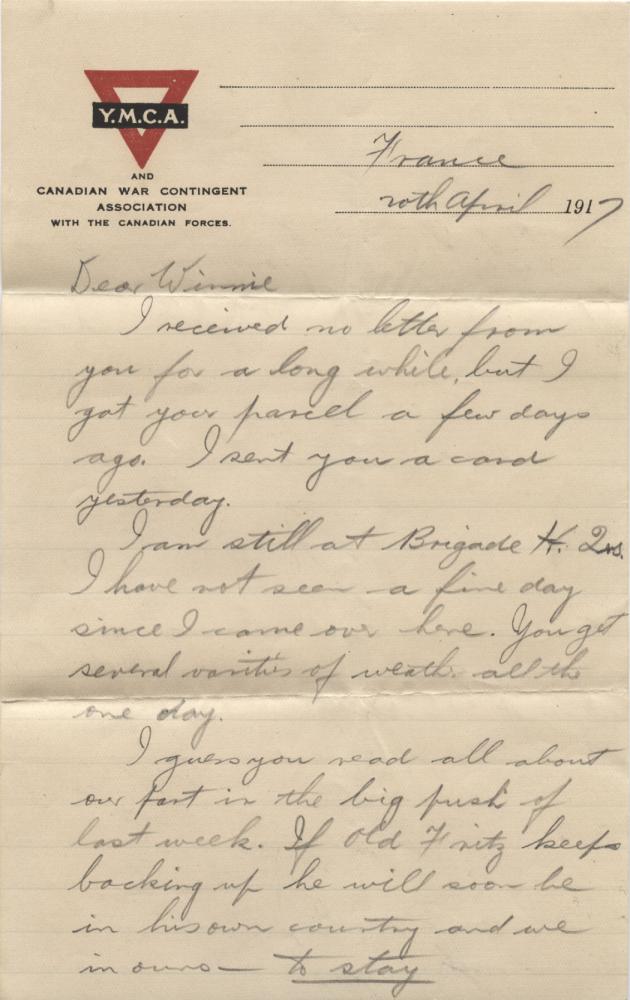 Y.M.C.A.
AND
CANADIAN WAR CONTINGENT
ASSOCIATION
WITH THE CANADIAN FORCES.
France
20th April 1917
Dear Winnie
I received no letter from
you for a long while, but I
got your parcel a few days
ago. I sent you a card
yesterday.
I am still at Brigade H. Qrs.
I have not seen a fine day
since I came over here. You get
several varitis of weath. all the
one day.
I guess you read all about
our part in the big push of
last week. If Old Fritz keeps
backing up he will soon be
in his own country and we
in ours — to stay